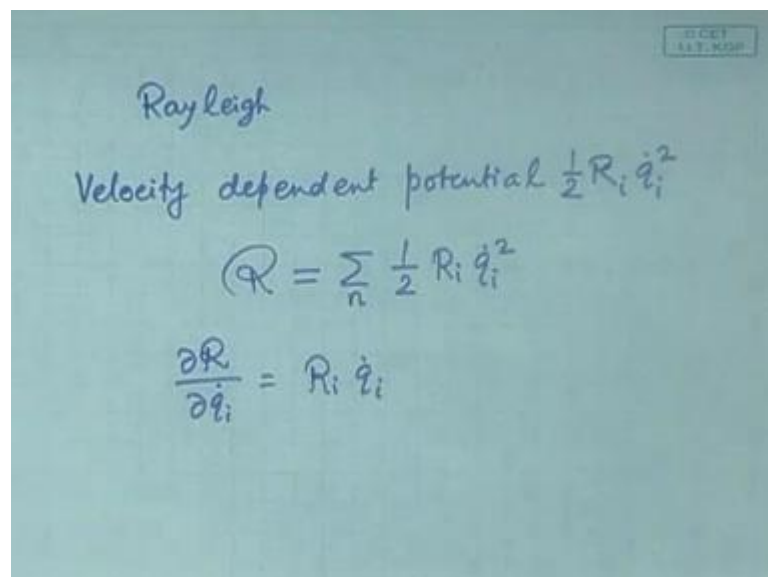 © CET
I.I.T. KGP
Rayleigh
Velocity dependent potential ½ Rᵢ q̇ᵢ²
ℛ = Σₙ ½ Rᵢ q̇ᵢ²
∂ℛ/∂q̇ᵢ = Rᵢ q̇ᵢ